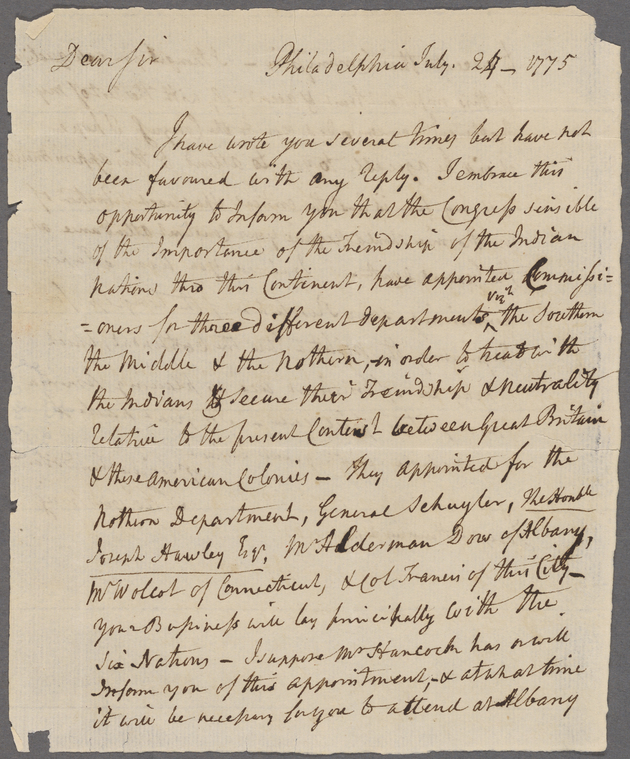 Dear Sir Philadelphia July. 24 - 1775
I have wrote you several times but have not
been favoured with any reply. I embrace this
opportunity to Inform you that the Congress sensible
of the Importance of the Freindship of the Indian
Nations thro this Continent, have appointed Commissi=
=oners for three different departments, vizt the Southern
the Middle & the Nothern, in order to treat with
the Indians to Secure their Freindship & neutrality
relative to the present Contest between Great Britain
& these American Colonies — They appointed for the
Nothern Department, General Schuyler, The Honble
Joseph Hawley Esqr, Mr Alderman Dow of Albany,
Mr Wolcot of Connecticut, & Col Francis of this City—
your Business will lay principally with the
Six Nations — I suppose Mr Hancock has or will
Inform you of this appointment, - & at what time
it will be necessary for you to attend at Albany